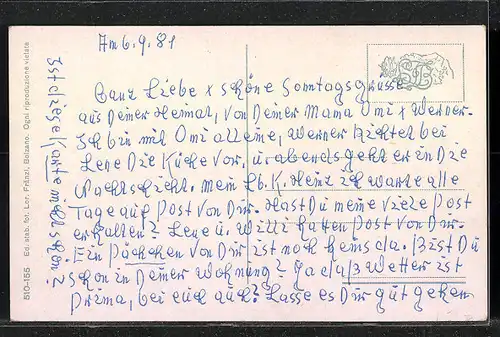 Am 6.9.81
Ganz Liebe x schöne Sonntagsgrüsse
aus Deiner Heimat, von Deiner Mama Omi x Werner-
Ich bin mit Omi alleine, Werner richtet bei
Lene Die Küche vor, u. abends geht er in Die
Nachtschicht. Mein Lb. K. Heinz ich warte alle
Tage auf Post von Dir. Hast Du meine viele Post
erhalten? Lene u. Willi hatten Post von Dir.
Ein Päckchen von Dir ist noch keins da. Bist Du
schon in Deiner Wohnung? Ja das Wetter ist
prima, bei euch auch? Lasse es Dir gut gehen
Ist diese Karte nicht schön?
510-155 Ed. stab. fot. Lor. Fränzl, Bolzano. Ogni riproduzione vietata